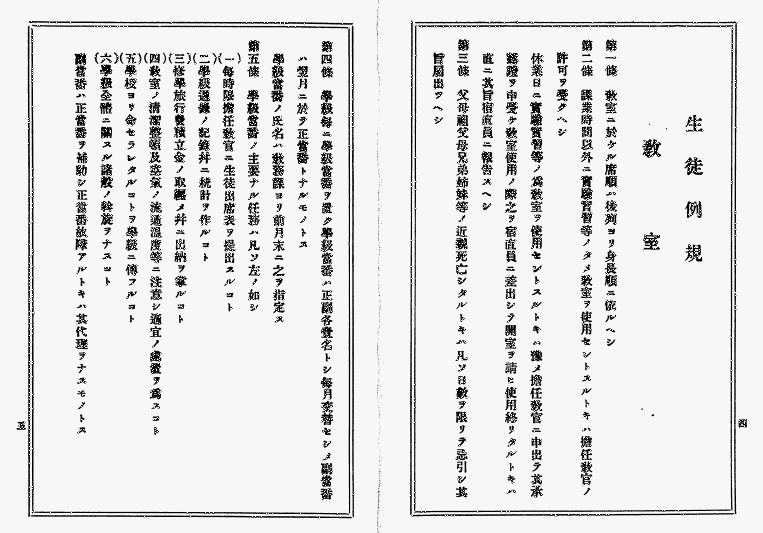 生徒例規
教室
第一條　教室ニ於ケル席順ハ後列ヨリ身長順ニ依ルヘシ
第二條　課業時間以外ニ實驗實習等ノタメ教室ヲ使用セントスルトキハ擔任教官ノ
許可ヲ受クヘシ
休業日ニ實驗實習等ノ爲教室ヲ使用セントスルトキハ豫メ擔任教官ニ申出テ其承
認證ヲ申受ケ教室使用ノ際之ヲ宿直員ニ差出シテ開室ヲ請ヒ使用終リタルトキハ
直ニ其旨宿直員ニ報告スヘシ
第三條　父母祖父母兄弟姉妹等ノ近親死亡シタルトキハ凡ソ日數ヲ限リテ忌引シ其
旨屆出ツヘシ
四
第四條　學級每ニ學級當番ヲ置ク學級當番ハ正副各壹名トシ每月交替セシメ副當番
ハ翌月ニ於テ正當番トナルモノトス
學級當番ノ氏名ハ敎務課ヨリ前月末ニ之ヲ指定ス
第五條　學級當番ノ主要ナル任務ハ凡ソ左ノ如シ
(一)每時限擔任敎官ニ生徒出席表ヲ提出スルコト
(二)學級週錄ノ記錄幷ニ統計ヲ作ルコト
(三)修學旅行費積立金ノ取纒メ幷ニ出納ヲ掌ルコト
(四)敎室ノ淸潔整頓及空氣ノ流通溫度等ニ注意シ適宜ノ處置ヲ爲スコト
(五)學校ヨリ命セラレタルコトヲ學級ニ傳フルコト
(六)學級全體ニ關スル諸般ノ斡旋ヲナスコト
副當番ハ正當番ヲ補助シ正當番故障アルトキハ其代理ヲナスモノトス
五